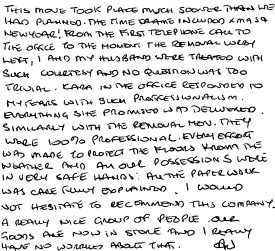 THIS MOVE TOOK PLACE MUCH SOONER THAN WE
HAD PLANNED. THE TIME FRAME INCLUDED XMAS &
NEW YEAR! FROM THE FIRST TELEPHONE CALL TO
THE OFFICE TO THE MOMENT THE REMOVAL LORRY
LEFT, I AND MY HUSBAND WERE TREATED WITH
SUCH COURTESY AND NO QUESTION WAS TOO
TRIVIAL. KARA IN THE OFFICE RESPONDED TO
MY FEARS WITH SUCH PROFFESSIONALISM
EVERYTHING SHE PROMISED WAS DELIVERED.
SIMILARLY WITH THE REMOVAL MEN. THEY
WERE 100% PROFESSIONAL. EVERY EFFORT
WAS MADE TO PROTECT THE FLOORS FROM THE
WEATHER AND ALL OUR POSSESSIONS WERE
IN VERY SAFE HANDS. ALL THE PAPERWORK
WAS CAREFULLY EXPLAINED. I WOULD
NOT HESITATE TO RECOMMEND THIS COMPANY.
A REALLY NICE GROUP OF PEOPLE. OUR
GOODS ARE NOW IN STORE AND I REALLY
HAVE NO WORRIES ABOUT THAT.